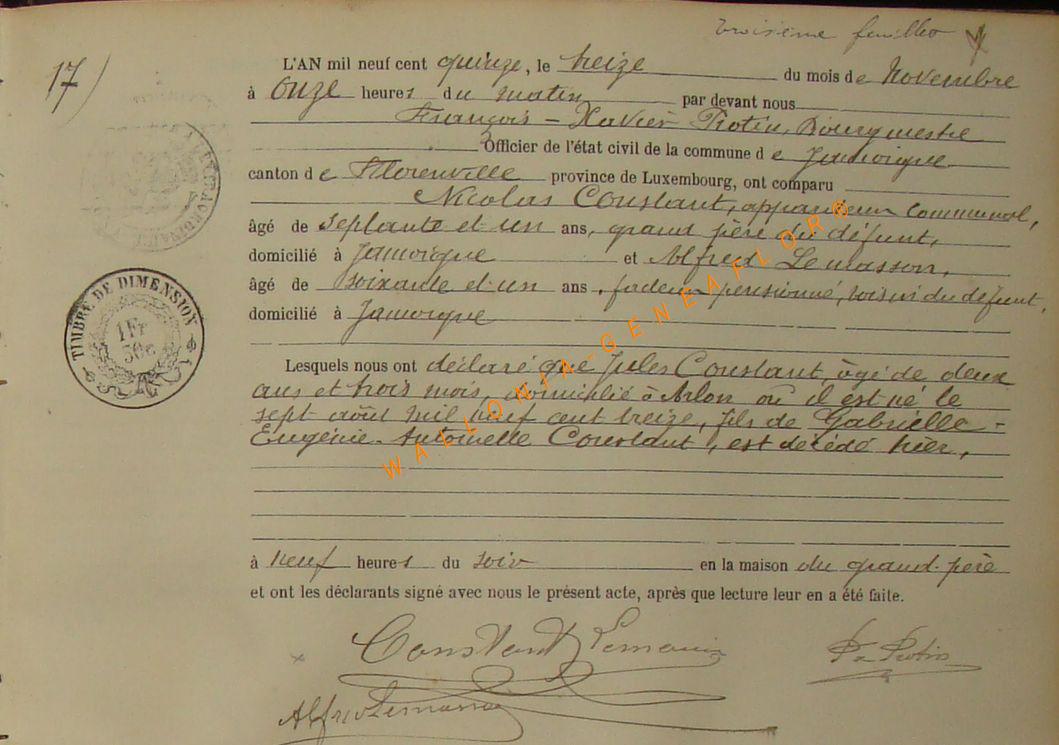 troisième feuillet
17)
L'AN mil neuf cent quinze, le treize du mois de Novembre
à Onze heures du matin par devant nous
François-Xavier Protin, Bourgmestre
Officier de l'état civil de la commune de Jamoigne
canton de Florenville province de Luxembourg, ont comparu
Nicolas Constant, appariteur communal,
âgé de septante et un ans, grand père du défunt,
domicilié à Jamoigne et Alfred Lemasson,
âgé de soixante et un ans, facteur pensionné, voisin du défunt,
domicilié à Jamoigne
Lesquels nous ont déclaré que Jules Constant, âgé de deux
ans et trois mois, domicilié à Arlon où il est né le
sept août mil neuf cent treize, fils de Gabrielle-
Eugénie-Antoinette Constant, est décédé hier,
à neuf heures du soir en la maison du grand-père
et ont les déclarants signé avec nous le présent acte, après que lecture leur en a été faite.
Constant
Fx Protin
Alfred Lemasson
TIMBRE DE DIMENSION
1 Fr
30c
WALLONIA-GENEAFLOR®